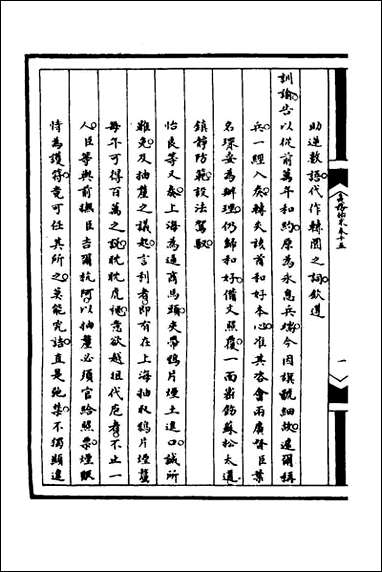 助逆數語代作轉圜之詞欽遵
訓諭告以從前萬年和約原為永息兵端今因誤聽細故遽爾稱
兵一經入奏轉失該酋和好本心准其咨會兩廣督臣葉
名琛妥為辦理仍歸和好備文照覆一面密飭蘇松太道
鎮靜防範設法駕馭
怡良等又奏上海為通商馬頭夾帶鴉片煙土進口誠所
難免及抽釐之議起言利者即有在上海抽收鴉片煙釐
每年可得百萬之說眈眈虎視意欲越俎代庖者不止一
人臣等與前撫臣吉爾杭阿以抽釐必須官給照票煙販
恃為護符竟可任其所之莫能究詰直是弛禁不獨顯違